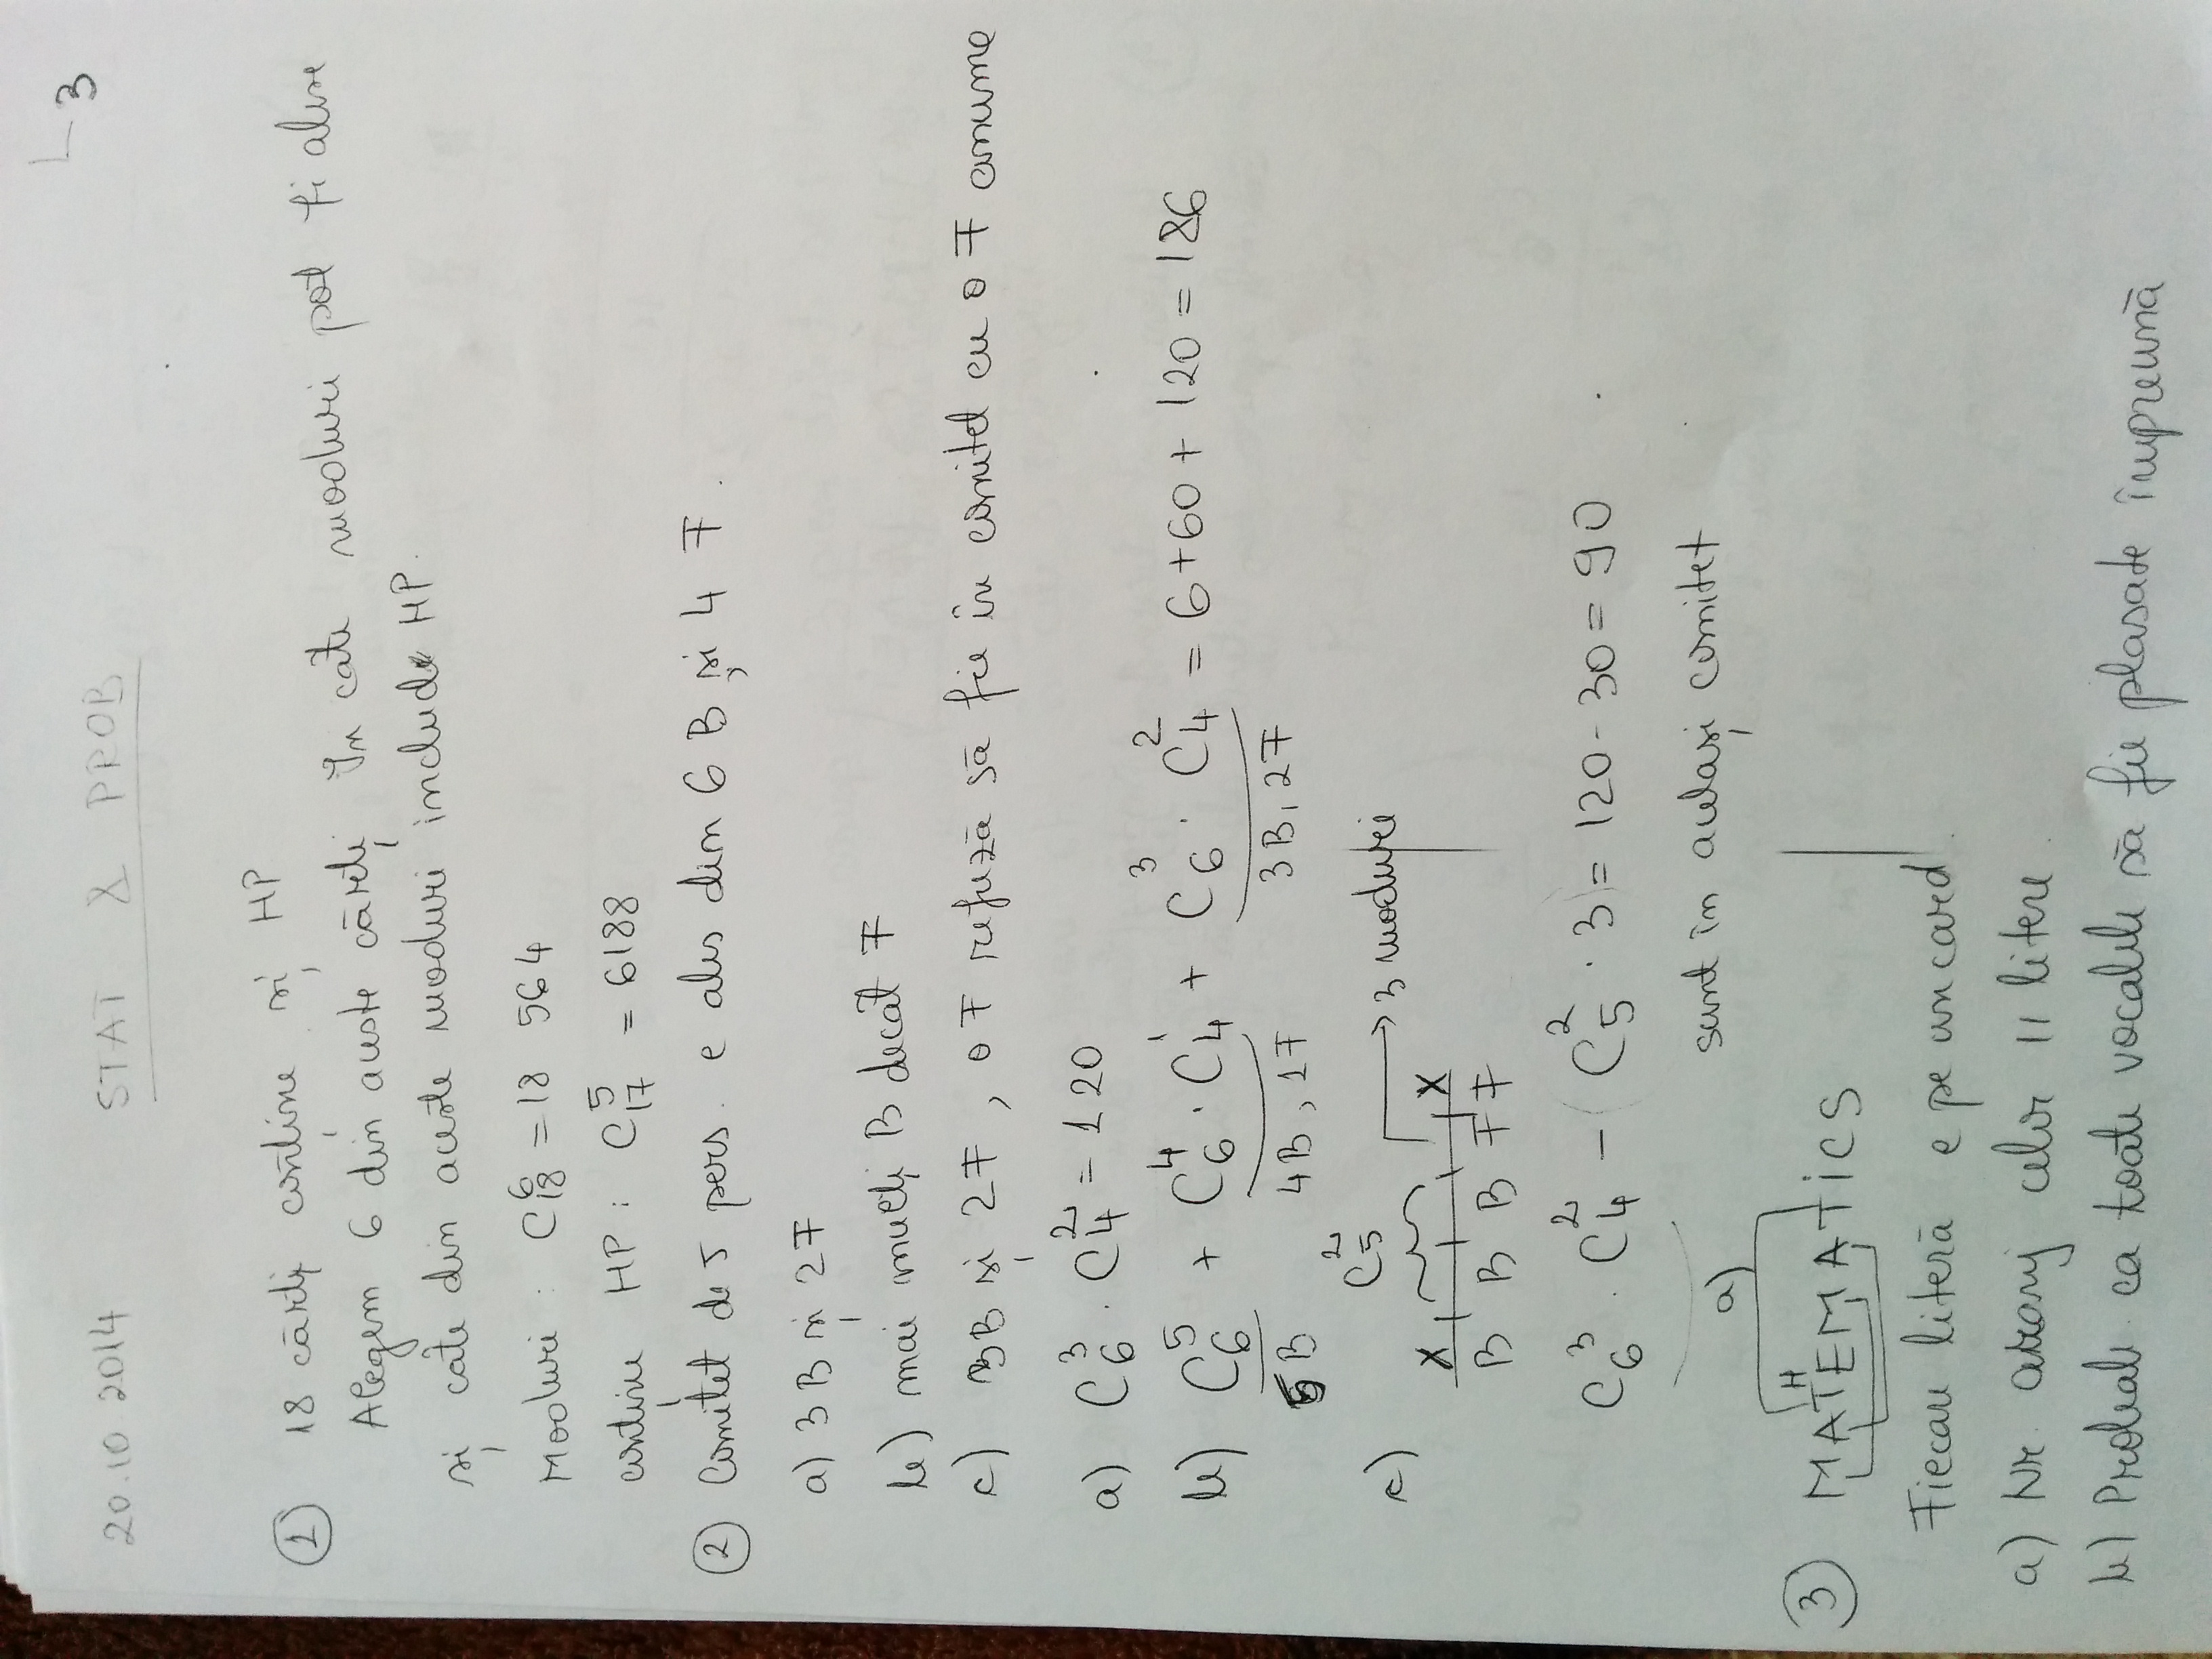 L 3
20.10.2014 STAT & PROB
① 18 cărți conține și HP
Alegem 6 din aceste cărți. În câte moduri pot fi alese
și câte din aceste moduri includ HP.
Moduri : C₁₈⁶ = 18 564
conține HP : C₁₇⁵ = 6188
② Comitet de 5 pers. e ales din 6 B și 4 F.
a) 3 B și 2 F
b) mai mulți B decât F
c) 3B și 2 F, o F refuză să fie în comitet cu o F anume
a) C₆³ · C₄² = 120
b) C₆⁵ + C₆⁴ · C₄¹ + C₆³ · C₄² = 6+60+120 = 186
5B 4B, 1F 3B, 2F
C₅²
c) → 3 moduri
X X
B B B F F
C₆³ · C₄² - (C₅² · 3) = 120 - 30 = 90
a) sunt în același comitet
H
③ MATEMATiCS
Fiecare literă e pe un card.
a) Nr. aranj celor 11 litere.
b) Probab. ca toate vocalele să fie plasate împreună